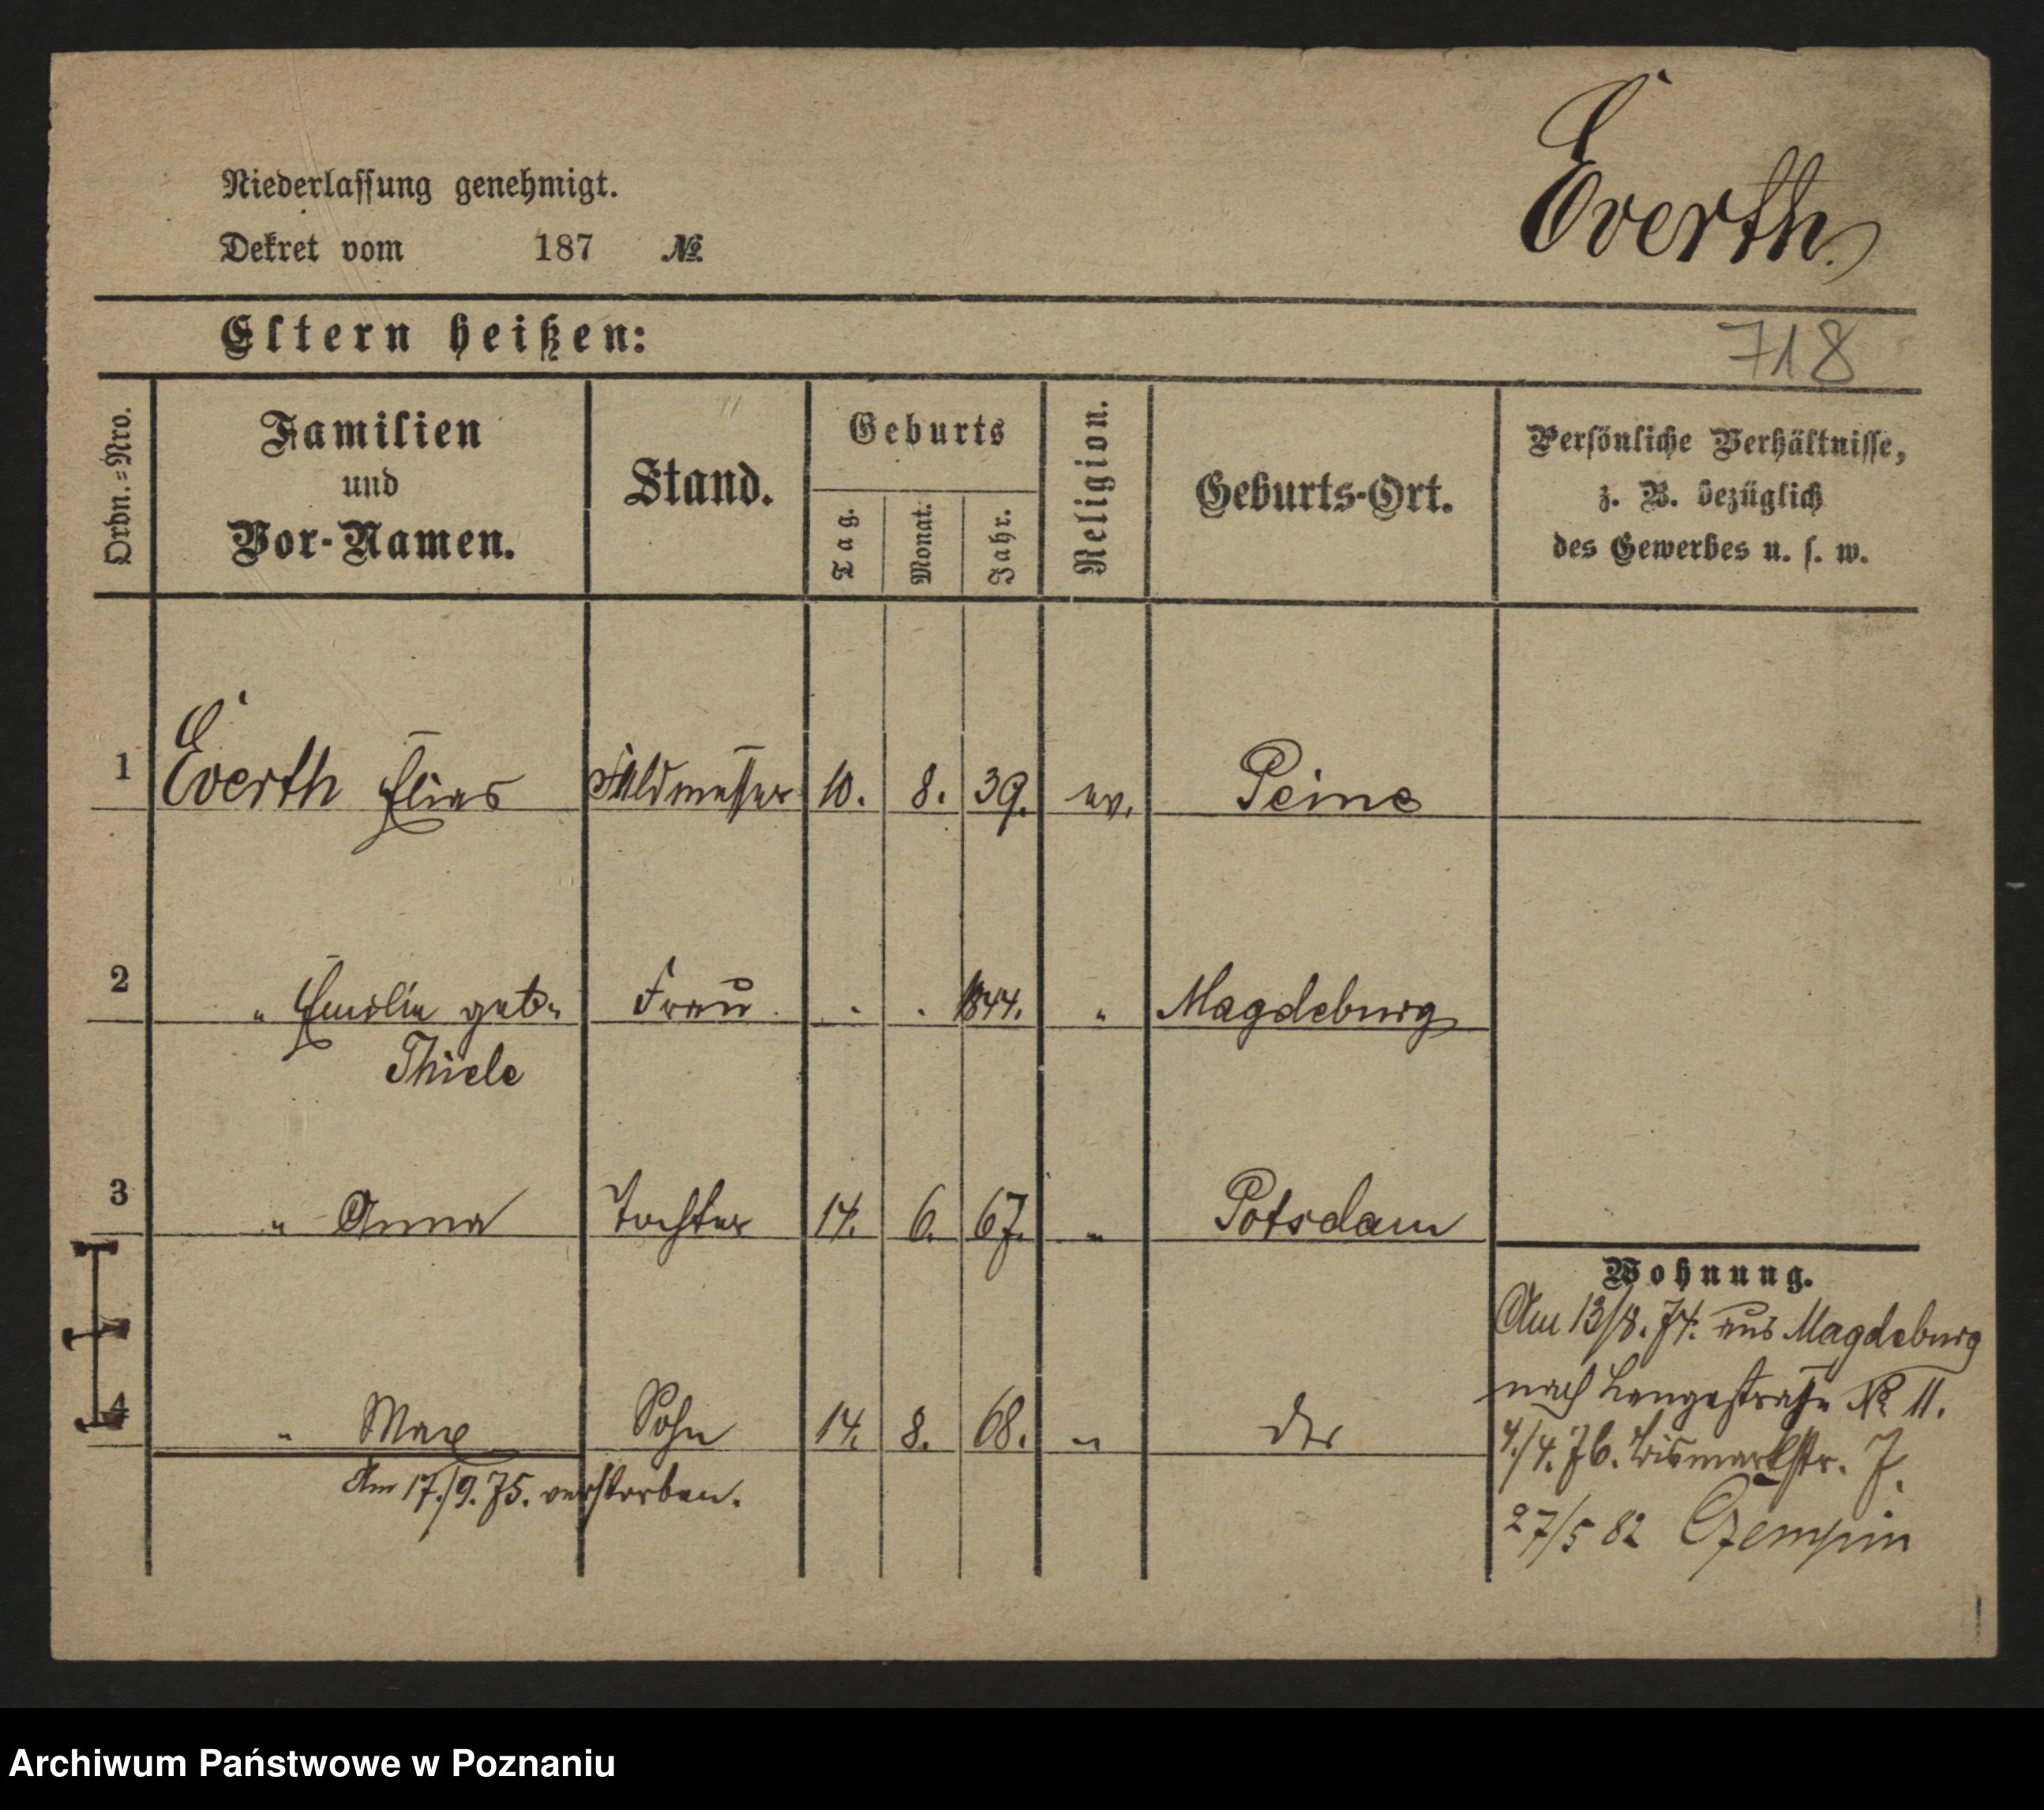 Everth
Niederlassung genehmigt.
Dekret vom 187 №
Eltern heißen:
718
Ordn.=Nro.
Familien
und
Vor-Namen.
Stand.
Geburts
Tag.
Monat.
Jahr.
Religion.
Geburts-Ort.
Persönliche Verhältnisse,
z. B. bezüglich
des Gewerbes u. s. w.
1 Everth Elias Feldmesser 10. 8. 39. ev. Peine
2 " Emilie geb. Frau . . 1844. " Magdeburg
Thiele
3 " Anna Tochter 14. 6. 67. " Potsdam
Wohnung.
Am 13/8. 74. aus Magdeburg
nach Langestraße № 11.
4 " Max Sohn 14. 8. 68. "
4./4. 76. Bismarckstr. 7.
Am 17./9. 75. verstorben.
27/5 82 Czempin
Archiwum Państwowe w Poznaniu